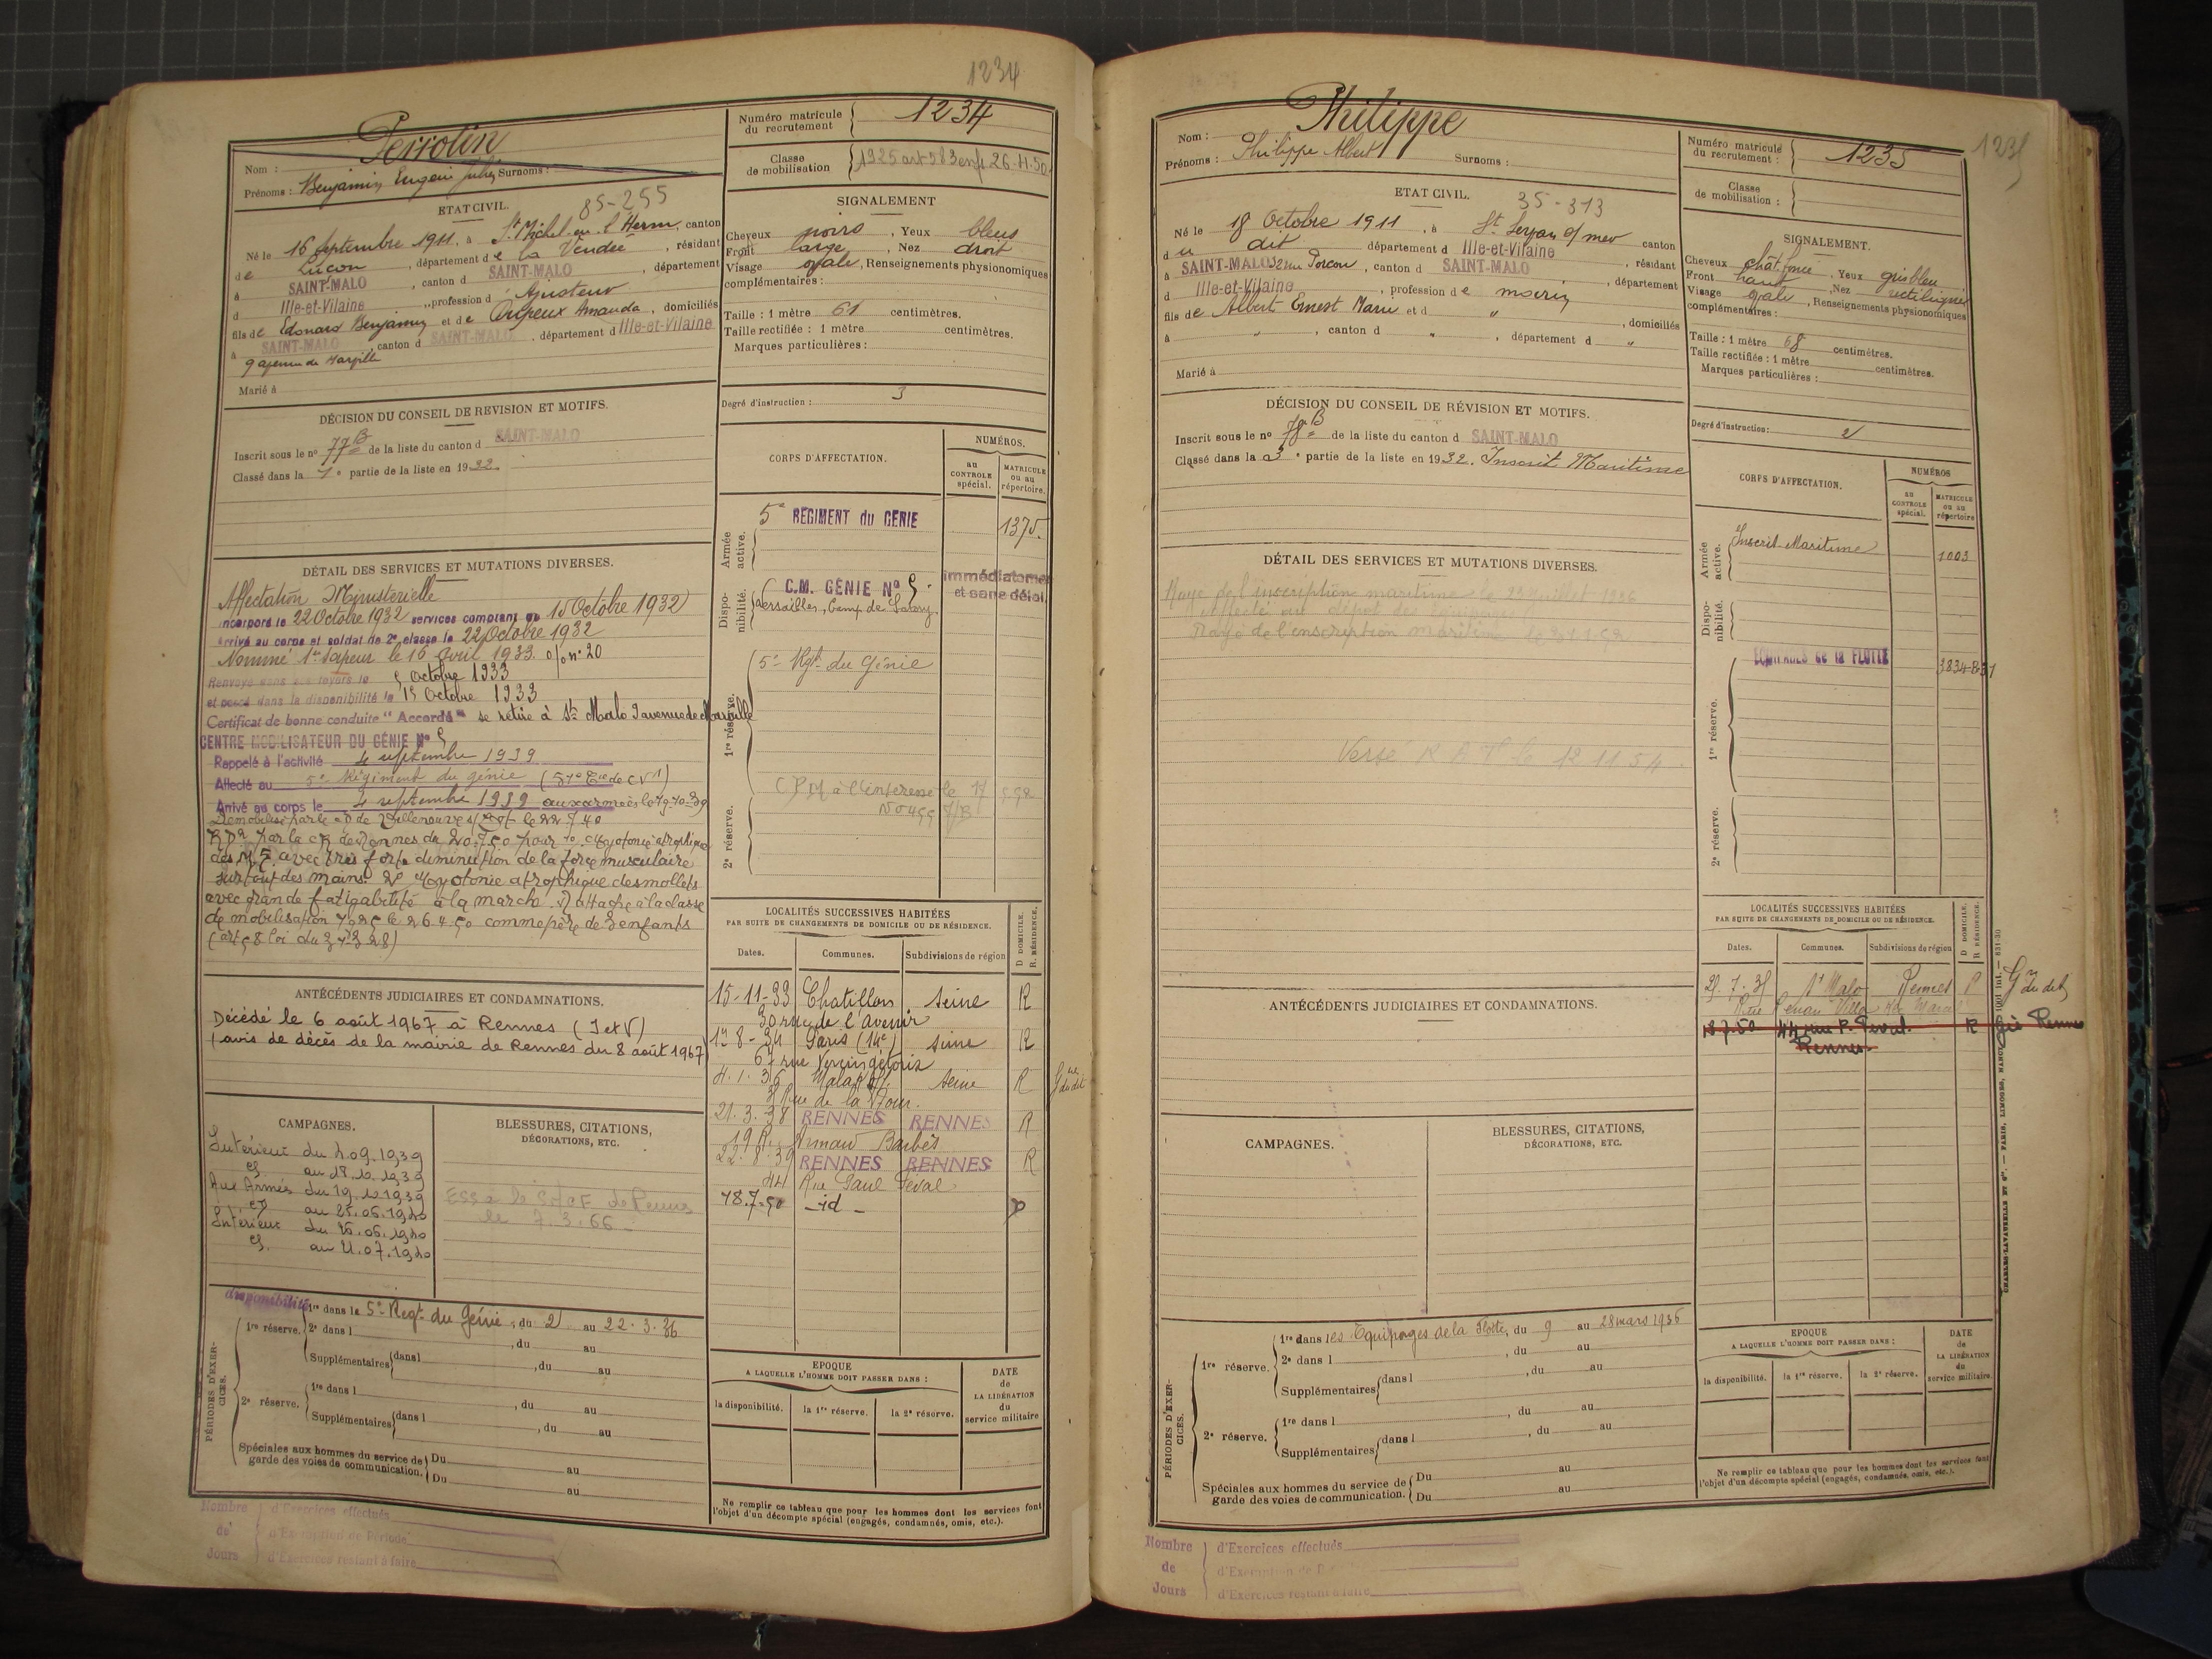 1234
Nom : Perrotin
Prénoms : Benjamin Eugène Jules Surnoms :
Numéro matricule du recrutement 1234
Classe de mobilisation 1925 art 58
ETAT CIVIL. 85-255
Né le 16 Septembre 1911, à St Michel en l'Herm, canton
de Luçon, département de la Vendée, résidant
à SAINT-MALO, canton d SAINT-MALO, département
d Ille-et-Vilaine, profession d'Ajusteur
fils de Edouard Benjamin et de Amanda, domiciliés
à SAINT-MALO, canton d SAINT-MALO, département d Ille-et-Vilaine
9 avenue de Marville
Marié à
SIGNALEMENT
Cheveux noirs, Yeux bleus
Front large, Nez droit
Visage ovale, Renseignements physionomiques
complémentaires :
Taille : 1 mètre 61 centimètres.
Taille rectifiée : 1 mètre centimètres.
Marques particulières :
Degré d'instruction : 3
DÉCISION DU CONSEIL DE RÉVISION ET MOTIFS.
Inscrit sous le no 77 B de la liste du canton d SAINT-MALO
Classé dans la 1e partie de la liste en 1932.
CORPS D'AFFECTATION.
NUMÉROS.
au CONTROLE spécial.
MATRICULE ou au répertoire.
Armée active.
5e REGIMENT du GENIE 1375.
Disponibilité.
C.M. GÉNIE No 5. immédiatement et sans délai.
Versailles, Camp de Satory.
1re réserve.
5e Rgt du Génie
2e réserve.
DÉTAIL DES SERVICES ET MUTATIONS DIVERSES.
Affectation Ministérielle
Incorporé le 22 Octobre 1932 services comptant du 15 Octobre 1932
Arrivé au corps et soldat de 2e classe le 22 Octobre 1932
Nommé 1er Sapeur le 16 Avril 1933 o/o no 20
Renvoyé dans ses foyers le 5 Octobre 1933
et passé dans la disponibilité le 15 Octobre 1933
Certificat de bonne conduite "Accordé" se retire à St Malo 9 avenue de Marville
CENTRE MOBILISATEUR DU GÉNIE No 5
Rappelé à l'activité 4 septembre 1939
Affecté au 5e Régiment du génie
Arrivé au corps le 4 septembre 1939 aux armées le 19-10-39
Démobilisé par le CD de Villeneuve s/Lot le 22 7 40
par la CR de Rennes du 20.7.50 pour 1o Myotonie atrophique
des M.S. avec très forte diminution de la force musculaire
surtout des mains. 2o Myotonie atrophique des mollets
avec grande fatigabilité à la marche. Rattaché à la classe
de mobilisation 1925 le 26.4.50 comme père de 3 enfants
(art 58 loi du 31.3.28)
LOCALITÉS SUCCESSIVES HABITÉES
PAR SUITE DE CHANGEMENTS DE DOMICILE OU DE RÉSIDENCE.
D. DOMICILE. R. RÉSIDENCE.
Dates. Communes. Subdivisions de région
15-11-33 Chatillon Seine R
30 rue de l'Avenir
13 8-34 Paris (14e) Seine R
67 rue Vercingétorix
4.1.36 Malakoff Seine R
Rue de la Tour.
21.3.38 RENNES RENNES R
19 R. Armand Barbès
22.8.39 RENNES RENNES R
44 Rue Paul Féval
18.7.50 -id- D
ANTÉCÉDENTS JUDICIAIRES ET CONDAMNATIONS.
Décédé le 6 août 1967 à Rennes (I et V)
(avis de décès de la mairie de Rennes du 8 août 1967)
CAMPAGNES.
Intérieur du 4.09.1939
au 18.10.1939
Aux Armées du 19.10.1939
au 25.06.1940
Intérieur du 26.06.1940
au 21.07.1940
BLESSURES, CITATIONS,
DÉCORATIONS, ETC.
de Rennes
le 7.3.66
PÉRIODES D'EXERCICES.
disponibilité 1re dans le 5e Regt du Génie, du 2 au 22.3.36
1re réserve. 2e dans l , du au
Supplémentaires dans l , du au
2e réserve. 1re dans l , du au
Supplémentaires dans l , du au
Spéciales aux hommes du service de garde des voies de communication. Du au
Du au
EPOQUE
A LAQUELLE L'HOMME DOIT PASSER DANS :
la disponibilité. la 1re réserve. la 2e réserve.
DATE de LA LIBÉRATION du service militaire
Ne remplir ce tableau que pour les hommes dont les services font
l'objet d'un décompte spécial (engagés, condamnés, omis, etc.).
Nombre de Jours
d'Exercices effectués
d'Exemption de Période
d'Exercices restant à faire
1235
Nom : Philippe
Prénoms : Philippe Albert Surnoms :
Numéro matricule du recrutement : 1235
Classe de mobilisation :
ETAT CIVIL. 35-313
Né le 18 Octobre 1911, à St Servan s/mer canton
du dit département d Ille-et-Vilaine, résidant
à SAINT-MALO rue Porcon, canton d SAINT-MALO, département
d Ille-et-Vilaine, profession de marin
fils de Albert Ernest Marie et d "
à " , canton d " , département d " , domiciliés
Marié à
SIGNALEMENT.
Cheveux chât. foncé. Yeux gris bleu
Front haut, Nez rectiligne
Visage ovale, Renseignements physionomiques
complémentaires :
Taille : 1 mètre 68 centimètres.
Taille rectifiée : 1 mètre centimètres.
Marques particulières :
Degré d'instruction : 2
DÉCISION DU CONSEIL DE RÉVISION ET MOTIFS.
Inscrit sous le no 78 B de la liste du canton d SAINT-MALO
Classé dans la 3e partie de la liste en 1932. Inscrit Maritime
CORPS D'AFFECTATION.
NUMÉROS
au CONTROLE spécial.
MATRICULE ou au répertoire
Armée active. Inscrit Maritime 1003
Disponibilité.
EQUIPAGES de la FLOTTE
1re réserve.
2e réserve.
DÉTAIL DES SERVICES ET MUTATIONS DIVERSES.
Rayé de l'inscription maritime le 23 Juillet 1936
Affecté au dépôt des équipages
Rayé de l'inscription maritime
Versé le 12 11 54
LOCALITÉS SUCCESSIVES HABITÉES
PAR SUITE DE CHANGEMENTS DE DOMICILE OU DE RÉSIDENCE.
D DOMICILE. R RÉSIDENCE.
Dates. Communes. Subdivisions de région
St Malo Rennes
18.7.50 44 rue P. Feval R
Rennes
ANTÉCÉDENTS JUDICIAIRES ET CONDAMNATIONS.
CAMPAGNES.
BLESSURES, CITATIONS,
DÉCORATIONS, ETC.
PÉRIODES D'EXERCICES.
1re réserve. 1re dans les Equipages de la Flotte, du 9 au 28 mars 1936
2e dans l , du au
Supplémentaires dans l , du au
2e réserve. 1re dans l , du au
Supplémentaires dans l , du au
Spéciales aux hommes du service de garde des voies de communication. Du au
Du au
EPOQUE
A LAQUELLE L'HOMME DOIT PASSER DANS :
la disponibilité. la 1re réserve. la 2e réserve.
DATE de LA LIBÉRATION du service militaire.
Ne remplir ce tableau que pour les hommes dont les services font
l'objet d'un décompte spécial (engagés, condamnés, omis, etc.).
Nombre de Jours
d'Exercices effectués
d'Exemption de
d'Exercices restant à faire
CHARLES-LAVAUZELLE ET Cie. — PARIS, LIMOGES, NANCY